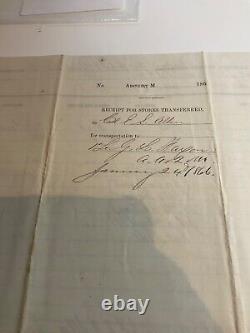 No. ABSTRACT M 186
RECEIPT FOR STORES TRANSFERRED,
to Col E S
for transportation to
Lt. G. S.
A. A. Q. M.
January 24 1866
ebay